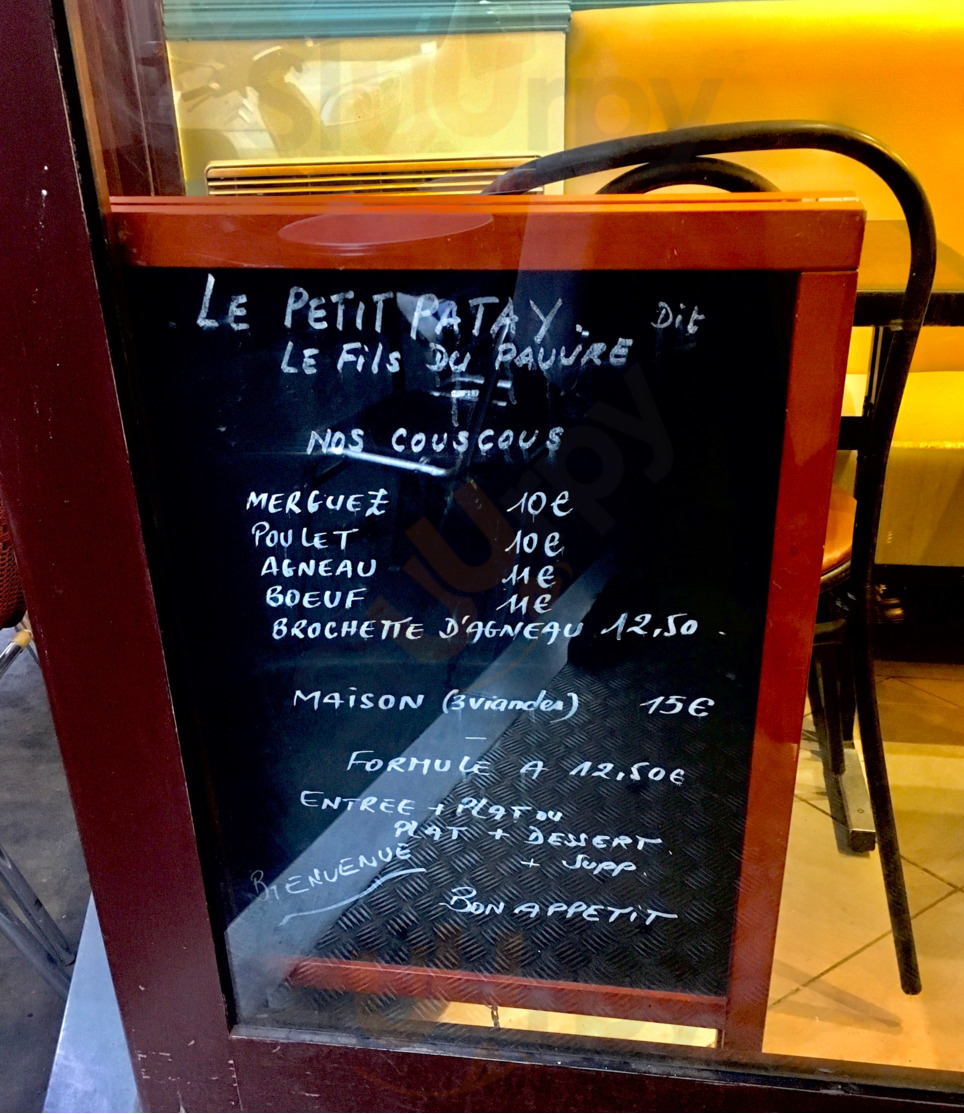 Sluurpy
LE PETIT PATAY. Dit
LE FiLS DU PAUVRE
NOS COUSCOUS
MERGUEZ 10€
POULET 10€
AGNEAU 11€
BOEUF 11€
BROCHETTE D'AGNEAU 12,50.
MAiSON (3 viandes) 15€
FORMULE A 12,50€
ENTREE + PLAT ou
PLAT + DESSERT.
+ SUPP.
BIENVENUE
BON APPETiT